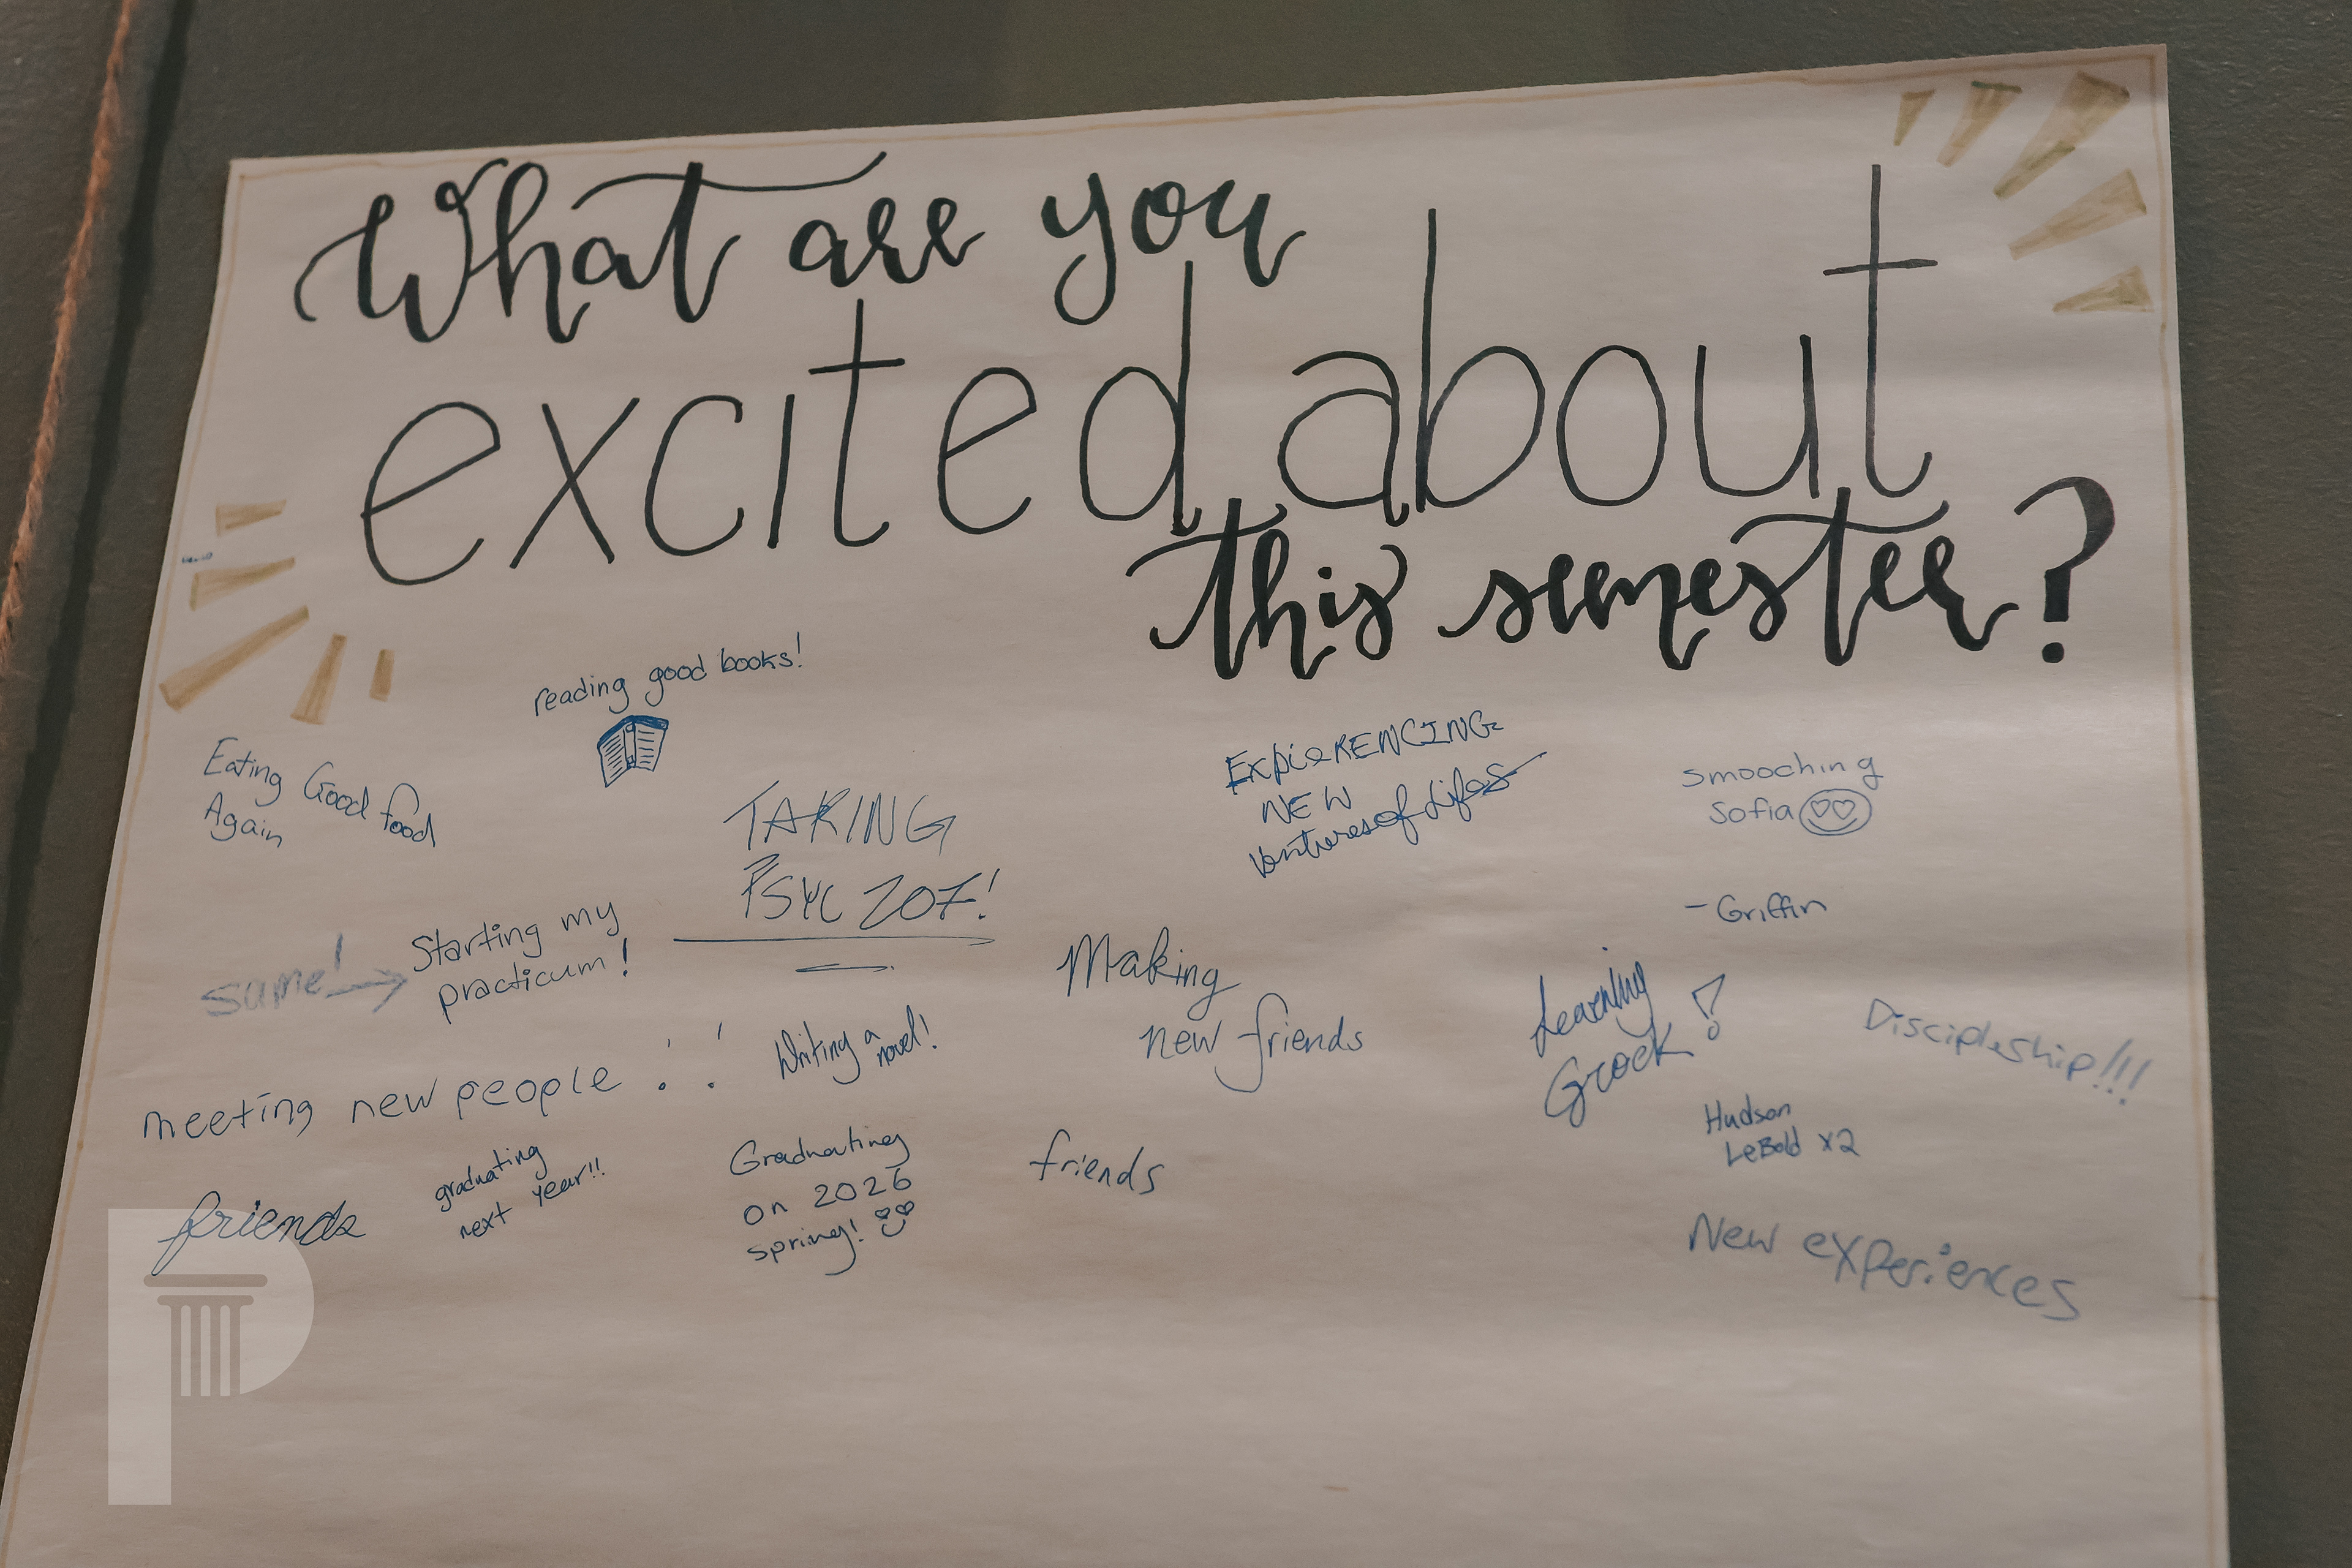 What are you
excited about
this semester?
reading good books!
Eating Good food
Again
TAKING
PSYC 207!
ExpieRENCING
NEW
Ventures of Lifes
smooching
Sofia
-Griffin
same! →
Starting my
practicum!
Making
new friends
Learning
Greek!
Discipleship!!!
meeting new people!!
Writing a
novel!
Hudson
LeBold x2
friends
graduating
next year!!
Graduating
on 2026
spring!
friends
New experiences
P